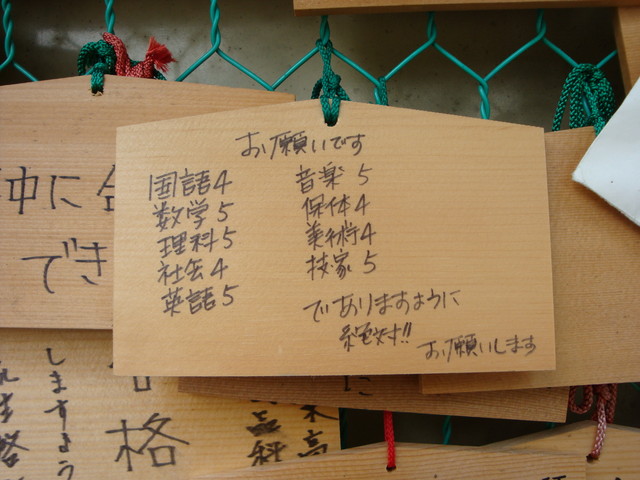 お願いです
国語4
数学5
理科5
社会4
英語5
音楽 5
保体4
美術4
技家 5
でありますように
絶対!!
お願いします
中に
でき
しますよう
合格